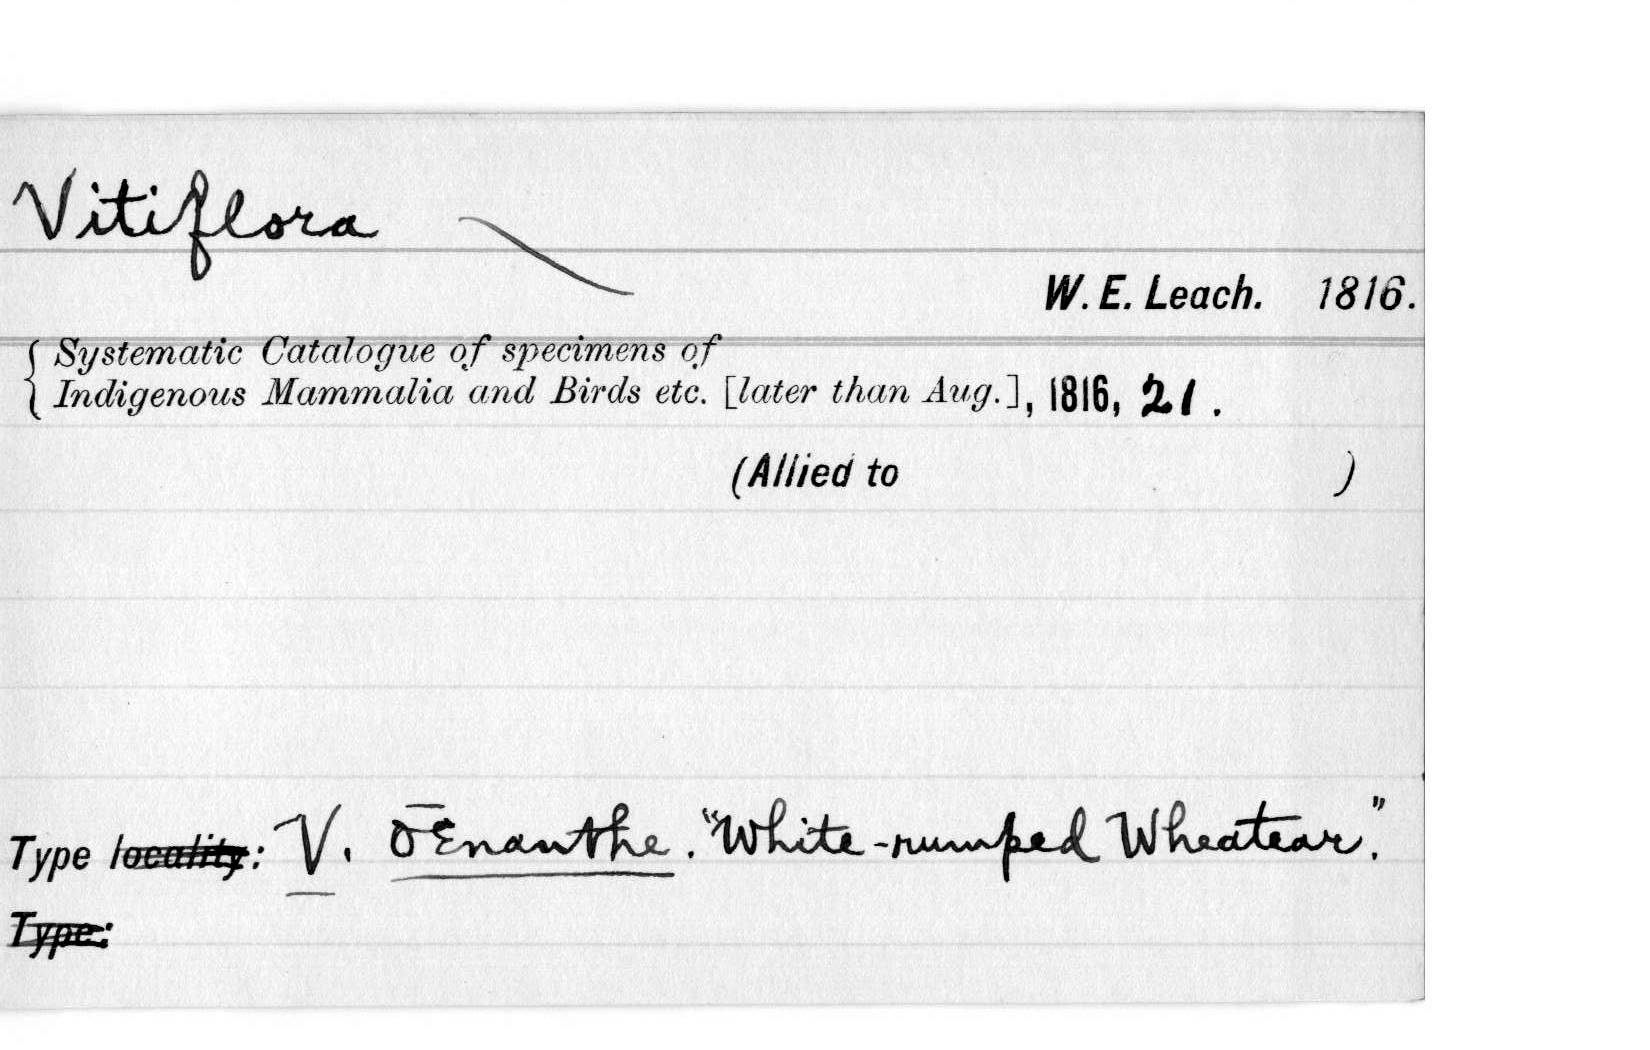 Vitiflora
W. E. Leach. 1816.
Systematic Catalogue of specimens of
Indigenous Mammalia and Birds etc. [later than Aug.], 1816, 21.
(Allied to )
Type locality: V. OEnanthe. "White-rumped Wheatear."
Type: